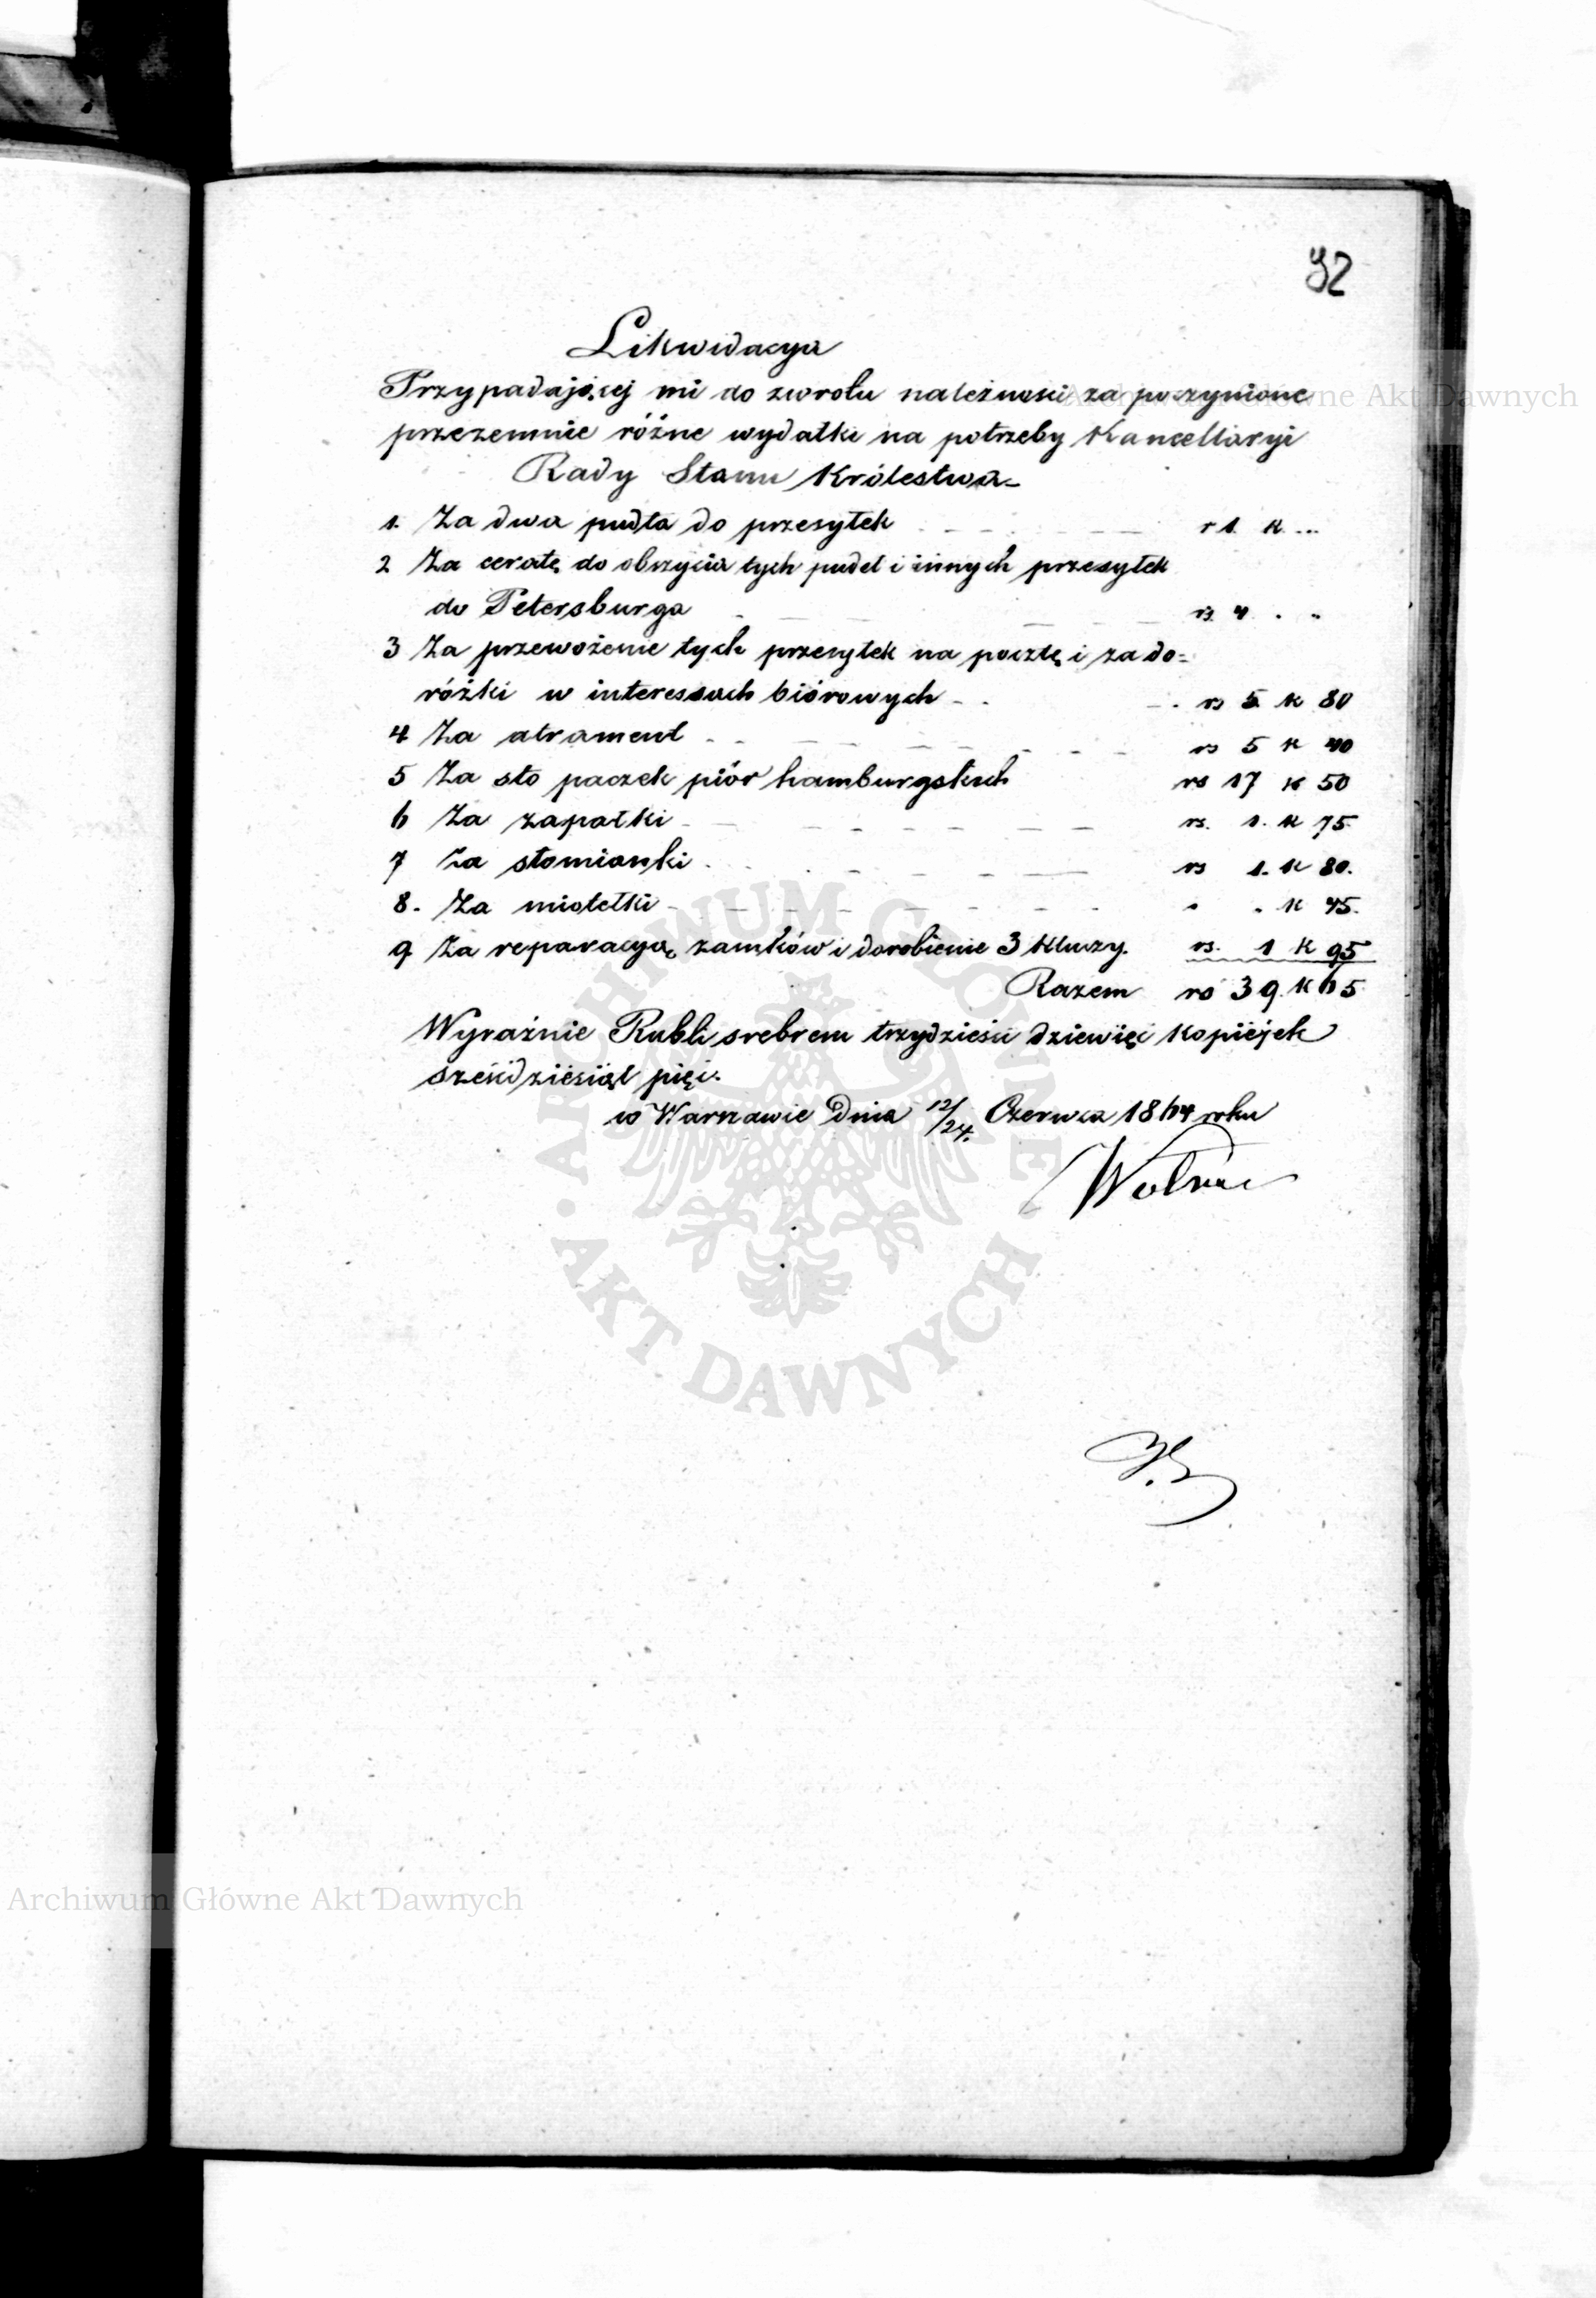 92
Likwidacya
Przypadającej mi do zwrotu należności za poczynione
przezemnie różne wydatki na potrzeby Kancellaryi
Rady Stanu Królestwa
1. Za dwa pudła do przesyłek r 1. k ...
2 Za ceratę do obszycia tych pudeł i innych przesyłek
do Petersburga rs. 4 . "
3 Za przewożenie tych przesyłek na pocztę i za do=
różki w interessach biórowych rs 5 k 80
4 Za atrament rs 5 k 40
5 Za sto paczek piór hamburgskich rs 17 k 50
6 Za zapałki rs. 1. k 75.
7 Za słomianki rs 1. k 80.
8. Za miotełki " " k 45.
9 Za reparacyą zamków i dorobienie 3 kluczy. rs. 1 k 95
Razem rs 39. k 65
Wyraźnie Rubli srebrem trzydzieści dziewięć kopiejek
sześćdziesiąt pięć.
w Warszawie dnia 12/24. Czerwca 1864 roku
Archiwum Główne Akt Dawnych
ARCHIWUM GŁÓWNE
AKT DAWNYCH
Archiwum Główne Akt Dawnych